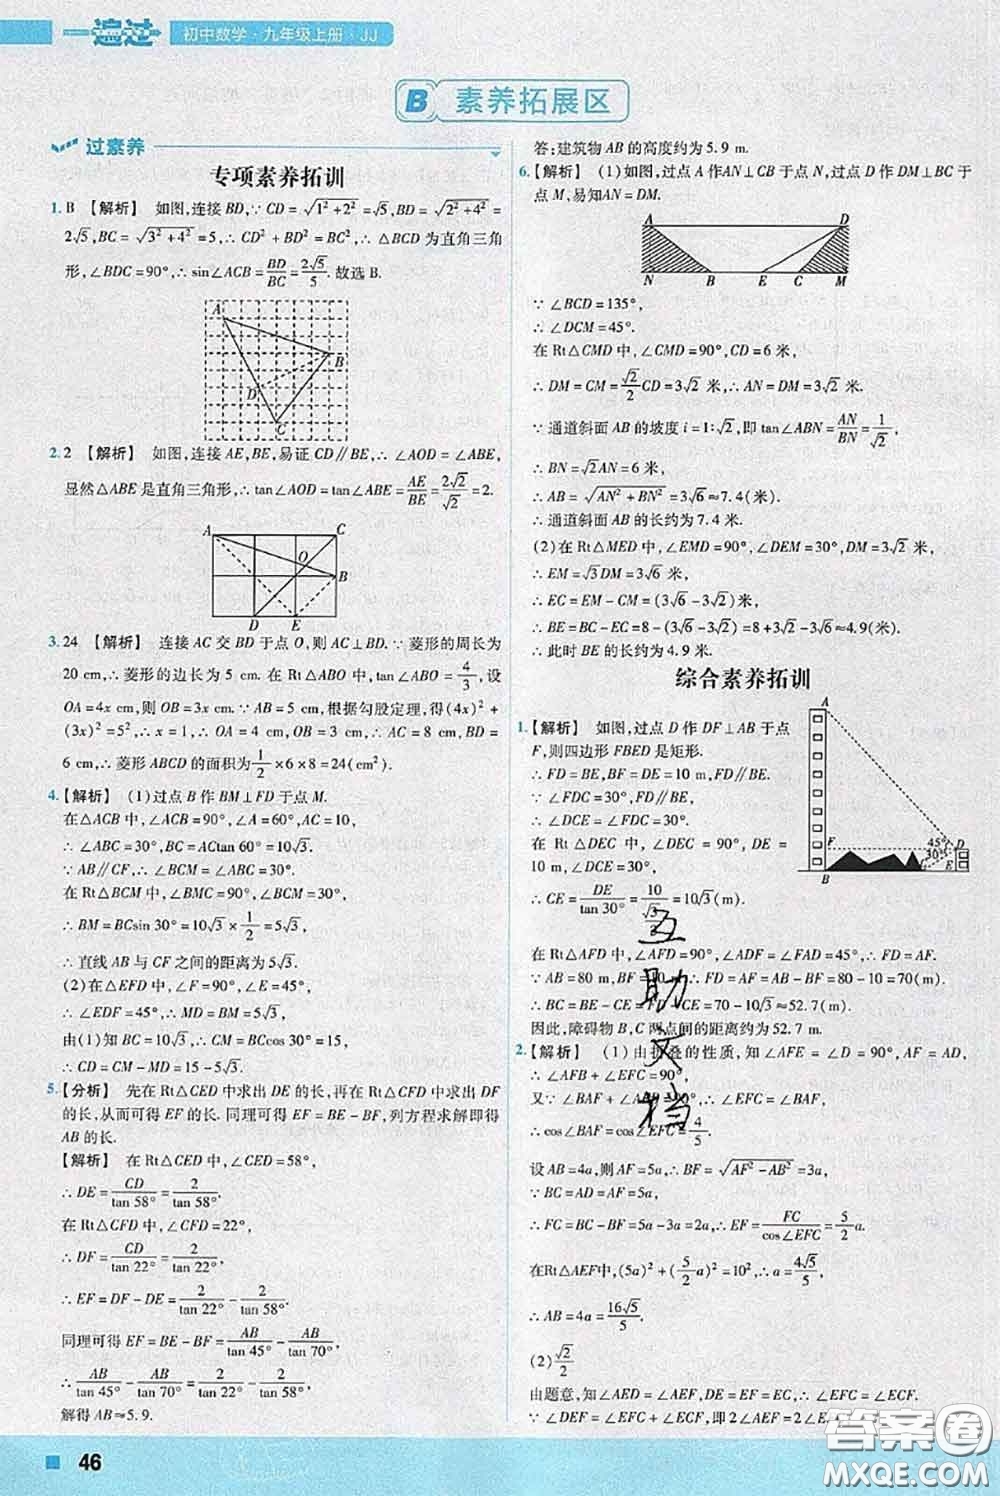 一遍过 初中数学·九年级上册·JJ
B 素养拓展区
过素养
专项素养拓训
1. B 【解析】 如图,连接BD,∵CD=√(1²+2²)=√5,BD=√(2²+4²)=
2√5,BC=√(3²+4²)=5,∴CD²+BD²=BC²,∴△BCD为直角三角
形,∠BDC=90°,∴sin∠ACB=BD/BC=2√5/5.故选B.
A
B
D
C
2. 2 【解析】 如图,连接AE,BE,易证CD∥BE,∴∠AOD=∠ABE,
显然△ABE是直角三角形,∴tan∠AOD=tan∠ABE=AE/BE=2√2/√2=2.
A C
O
B
D E
3. 24 【解析】 连接AC交BD于点O,则AC⊥BD.∵菱形的周长为
20 cm,∴菱形的边长为5 cm.在Rt△ABO中,tan∠ABO=4/3,设
OA=4x cm,则OB=3x cm,∵AB=5 cm,根据勾股定理,得(4x)²+
(3x)²=5²,∴x=1,∴OA=4 cm,OB=3 cm,∴AC=8 cm,BD=
6 cm,∴菱形ABCD的面积为1/2×6×8=24(cm²).
4.【解析】 (1)过点B作BM⊥FD于点M.
在△ACB中,∠ACB=90°,∠A=60°,AC=10,
∴∠ABC=30°,BC=ACtan 60°=10√3.
∵AB∥CF,∴∠BCM=∠ABC=30°.
在Rt△BCM中,∠BMC=90°,
∴BM=BCsin 30°=10√3×1/2=5√3,
∴直线AB与CF之间的距离为5√3.
(2)在△EFD中,∠F=90°,∠E=45°,
∴∠EDF=45°,∴MD=BM=5√3.
由(1)知BC=10√3,∴CM=BCcos 30°=15,
∴CD=CM-MD=15-5√3.
5.【分析】 先在Rt△CED中求出DE的长,再在Rt△CFD中求出DF
的长,从而可得EF的长.同理可得EF=BE-BF,列方程求解即得
AB的长.
【解析】 在Rt△CED中,∠CED=58°,
∴DE=CD/tan 58°=2/tan 58°.
在Rt△CFD中,∠CFD=22°,
∴DF=CD/tan 22°=2/tan 22°,
∴EF=DF-DE=2/tan 22°-2/tan 58°.
同理可得EF=BE-BF=AB/tan 45°-AB/tan 70°,
∴AB/tan 45°-AB/tan 70°=2/tan 22°-2/tan 58°,
解得AB≈5.9.
答:建筑物AB的高度约为5.9 m.
6.【解析】 (1)如图,过点A作AN⊥CB于点N,过点D作DM⊥BC于
点M,易知AN=DM.
A D
N B E C M
∵∠BCD=135°,
∴∠DCM=45°.
在Rt△CMD中,∠CMD=90°,CD=6米,
∴DM=CM=√2/2CD=3√2米,∴AN=DM=3√2米.
∵通道斜面AB的坡度i=1:√2,即tan∠ABN=AN/BN=1/√2,
∴BN=√2AN=6米,
∴AB=√(AN²+BN²)=3√6≈7.4(米).
∴通道斜面AB的长约为7.4米.
(2)在Rt△MED中,∠EMD=90°,∠DEM=30°,DM=3√2米,
∴EM=√3DM=3√6米,
∴EC=EM-CM=(3√6-3√2)米,
∴BE=BC-EC=8-(3√6-3√2)=8+3√2-3√6≈4.9(米).
∴此时BE的长约为4.9米.
综合素养拓训
1.【解析】 如图,过点D作DF⊥AB于点
F,则四边形FBED是矩形.
∴FD=BE,BF=DE=10 m,FD∥BE.
∵∠FDC=30°,FD∥BE,
∴∠DCE=∠FDC=30°.
在Rt△DEC中,∠DEC=90°,DE=
10 m,∠DCE=30°,
∴CE=DE/tan 30°=10/(√3/3)=10√3(m).
A
F 45° D
30° E
B C
在Rt△AFD中,∠AFD=90°,∠ADF=∠FAD=45°,∴FD=AF.
∵AB=80 m,BF=10 m,∴FD=AF=AB-BF=80-10=70(m).
∴BC=BE-CE=FD-CE=70-10√3≈52.7(m).
因此,障碍物B,C两点间的距离约为52.7 m.
2.【解析】 (1)由折叠的性质,知∠AFE=∠D=90°,AF=AD,
∴∠AFB+∠EFC=90°,
又∵∠BAF+∠AFB=90°,∴∠EFC=∠BAF,
∴cos∠BAF=cos∠EFC=4/5.
设AB=4a,则AF=5a,∴BF=√(AF²-AB²)=3a,
∵BC=AD=AF=5a,
∴FC=BC-BF=5a-3a=2a,∴EF=FC/cos∠EFC=5/2a.
在Rt△AEF中,(5a)²+(5/2a)²=10²,∴a=4√5/5,
∴AB=4a=16√5/5.
(2)√2/2
由题意,知∠AED=∠AEF,DE=EF=EC,
∵∠DEF=∠EFC+∠C,即2∠AEF=∠EFC+90°,
互助文档
46
答案圈
MXQE.COM